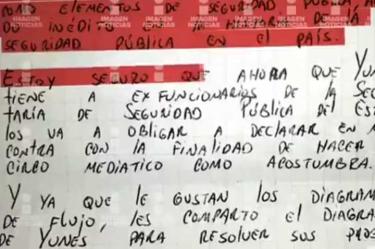 COMO ELEMENTOS DE SEGURIDAD PÚBLICA
SEGURIDAD PÚBLICA EN EL PAÍS.
ESTOY SEGURO QUE AHORA QUE YUN
TIENE A EXFUNCIONARIOS DE LA SEC
TARÍA DE SEGURIDAD PÚBLICA DEL EST
LOS VA A OBLIGAR A DECLARAR EN M
CONTRA CON LA FINALIDAD DE HACER
CIRCO MEDIATICO COMO ACOSTUMBRA.
Y YA QUE LE GUSTAN LOS DIAGRAM
DE FLUJO, LES COMPARTO EL DIAGRA
DE YUNES PARA RESOLVER SUS PRO
IMAGEN NOTICIAS